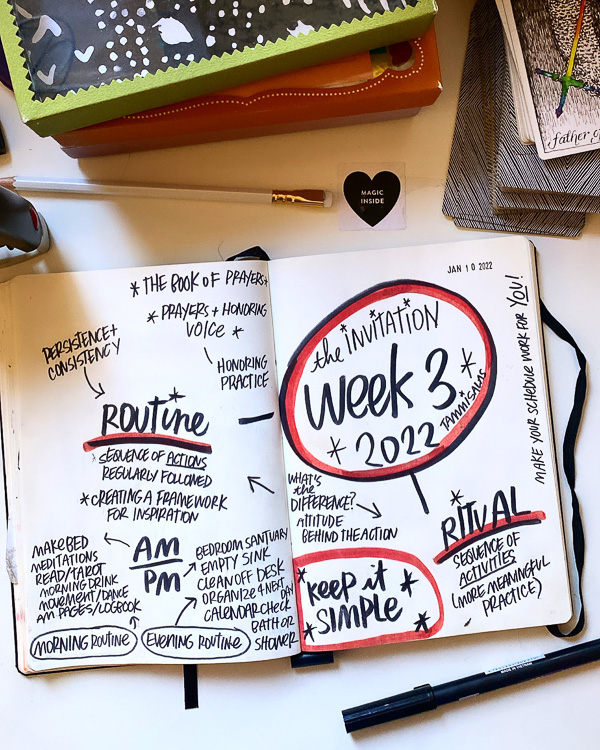 father o
MAGIC
INSIDE
JAN 10 2022
* THE BOOK OF PRAYERS+
* PRAYERS + HONORING
VOICE *
HONORING
PRACTICE
PERSISTENCE+
CONSISTENCY
ROUTINE
SEQUENCE OF ACTIONS
REGULARLY FOLLOWED
* CREATING A FRAMEWORK
FOR INSPIRATION
AM
PM
MAKE BED
MEDITATIONS
READ/TAROT
MORNING DRINK
MOVEMENT/DANCE
AM PAGES/LOGBOOK
MORNING ROUTINE
BEDROOM SANTUARY
EMPTY SINK
CLEAN OFF DESK
ORGANIZE 4 NEXT DAY
CALENDAR CHECK
BATH OR
SHOWER
EVENING ROUTINE
the INVITATION
Week 3
2022
TAMMISALAS
MAKE YOUR SCHEDULE WORK FOR YOU!
WHAT'S
the
DIFFERENCE?
ATTITUDE
BEHIND THE ACTION
RITUAL
SEQUENCE OF
ACTIVITIES
(MORE MEANINGFUL
PRACTICE)
KEEP it
SIMPLE